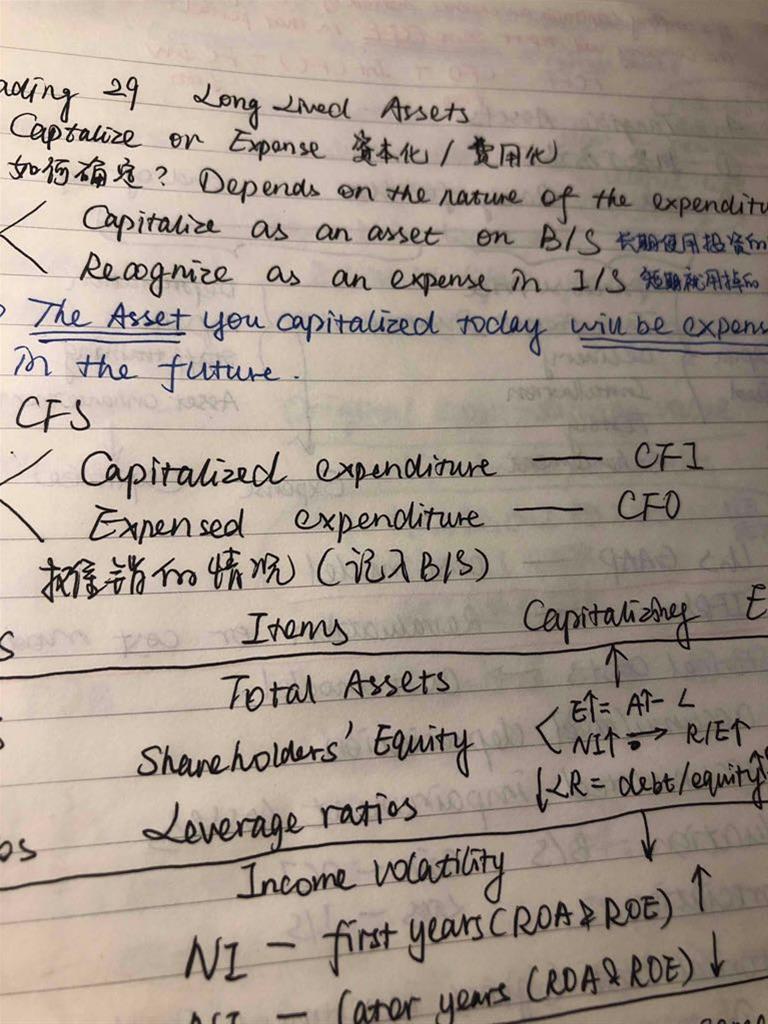 ading 29 Long Lived Assets
Capitalize or Expense 资本化 / 费用化
如何确定? Depends on the nature of the expenditu
Capitalize as an asset on B/S 长期使用投资的
Recognize as an expense in I/S 短期就用掉的
The Asset you capitalized today will be expens
in the future.
CFS
Capitalized expenditure — CFI
Expensed expenditure — CFO
摊销的情况 (记入B/S)
S Items Capitalizing E
Total Assets ↑
E↑= A↑- L
Shareholders' Equity NI↑ → R/E↑
Leverage ratios ↓LR = debt/equity↑
os
Income volatility ↓
NI - first years (ROA & ROE) ↑
NI - later years (ROA & ROE) ↓